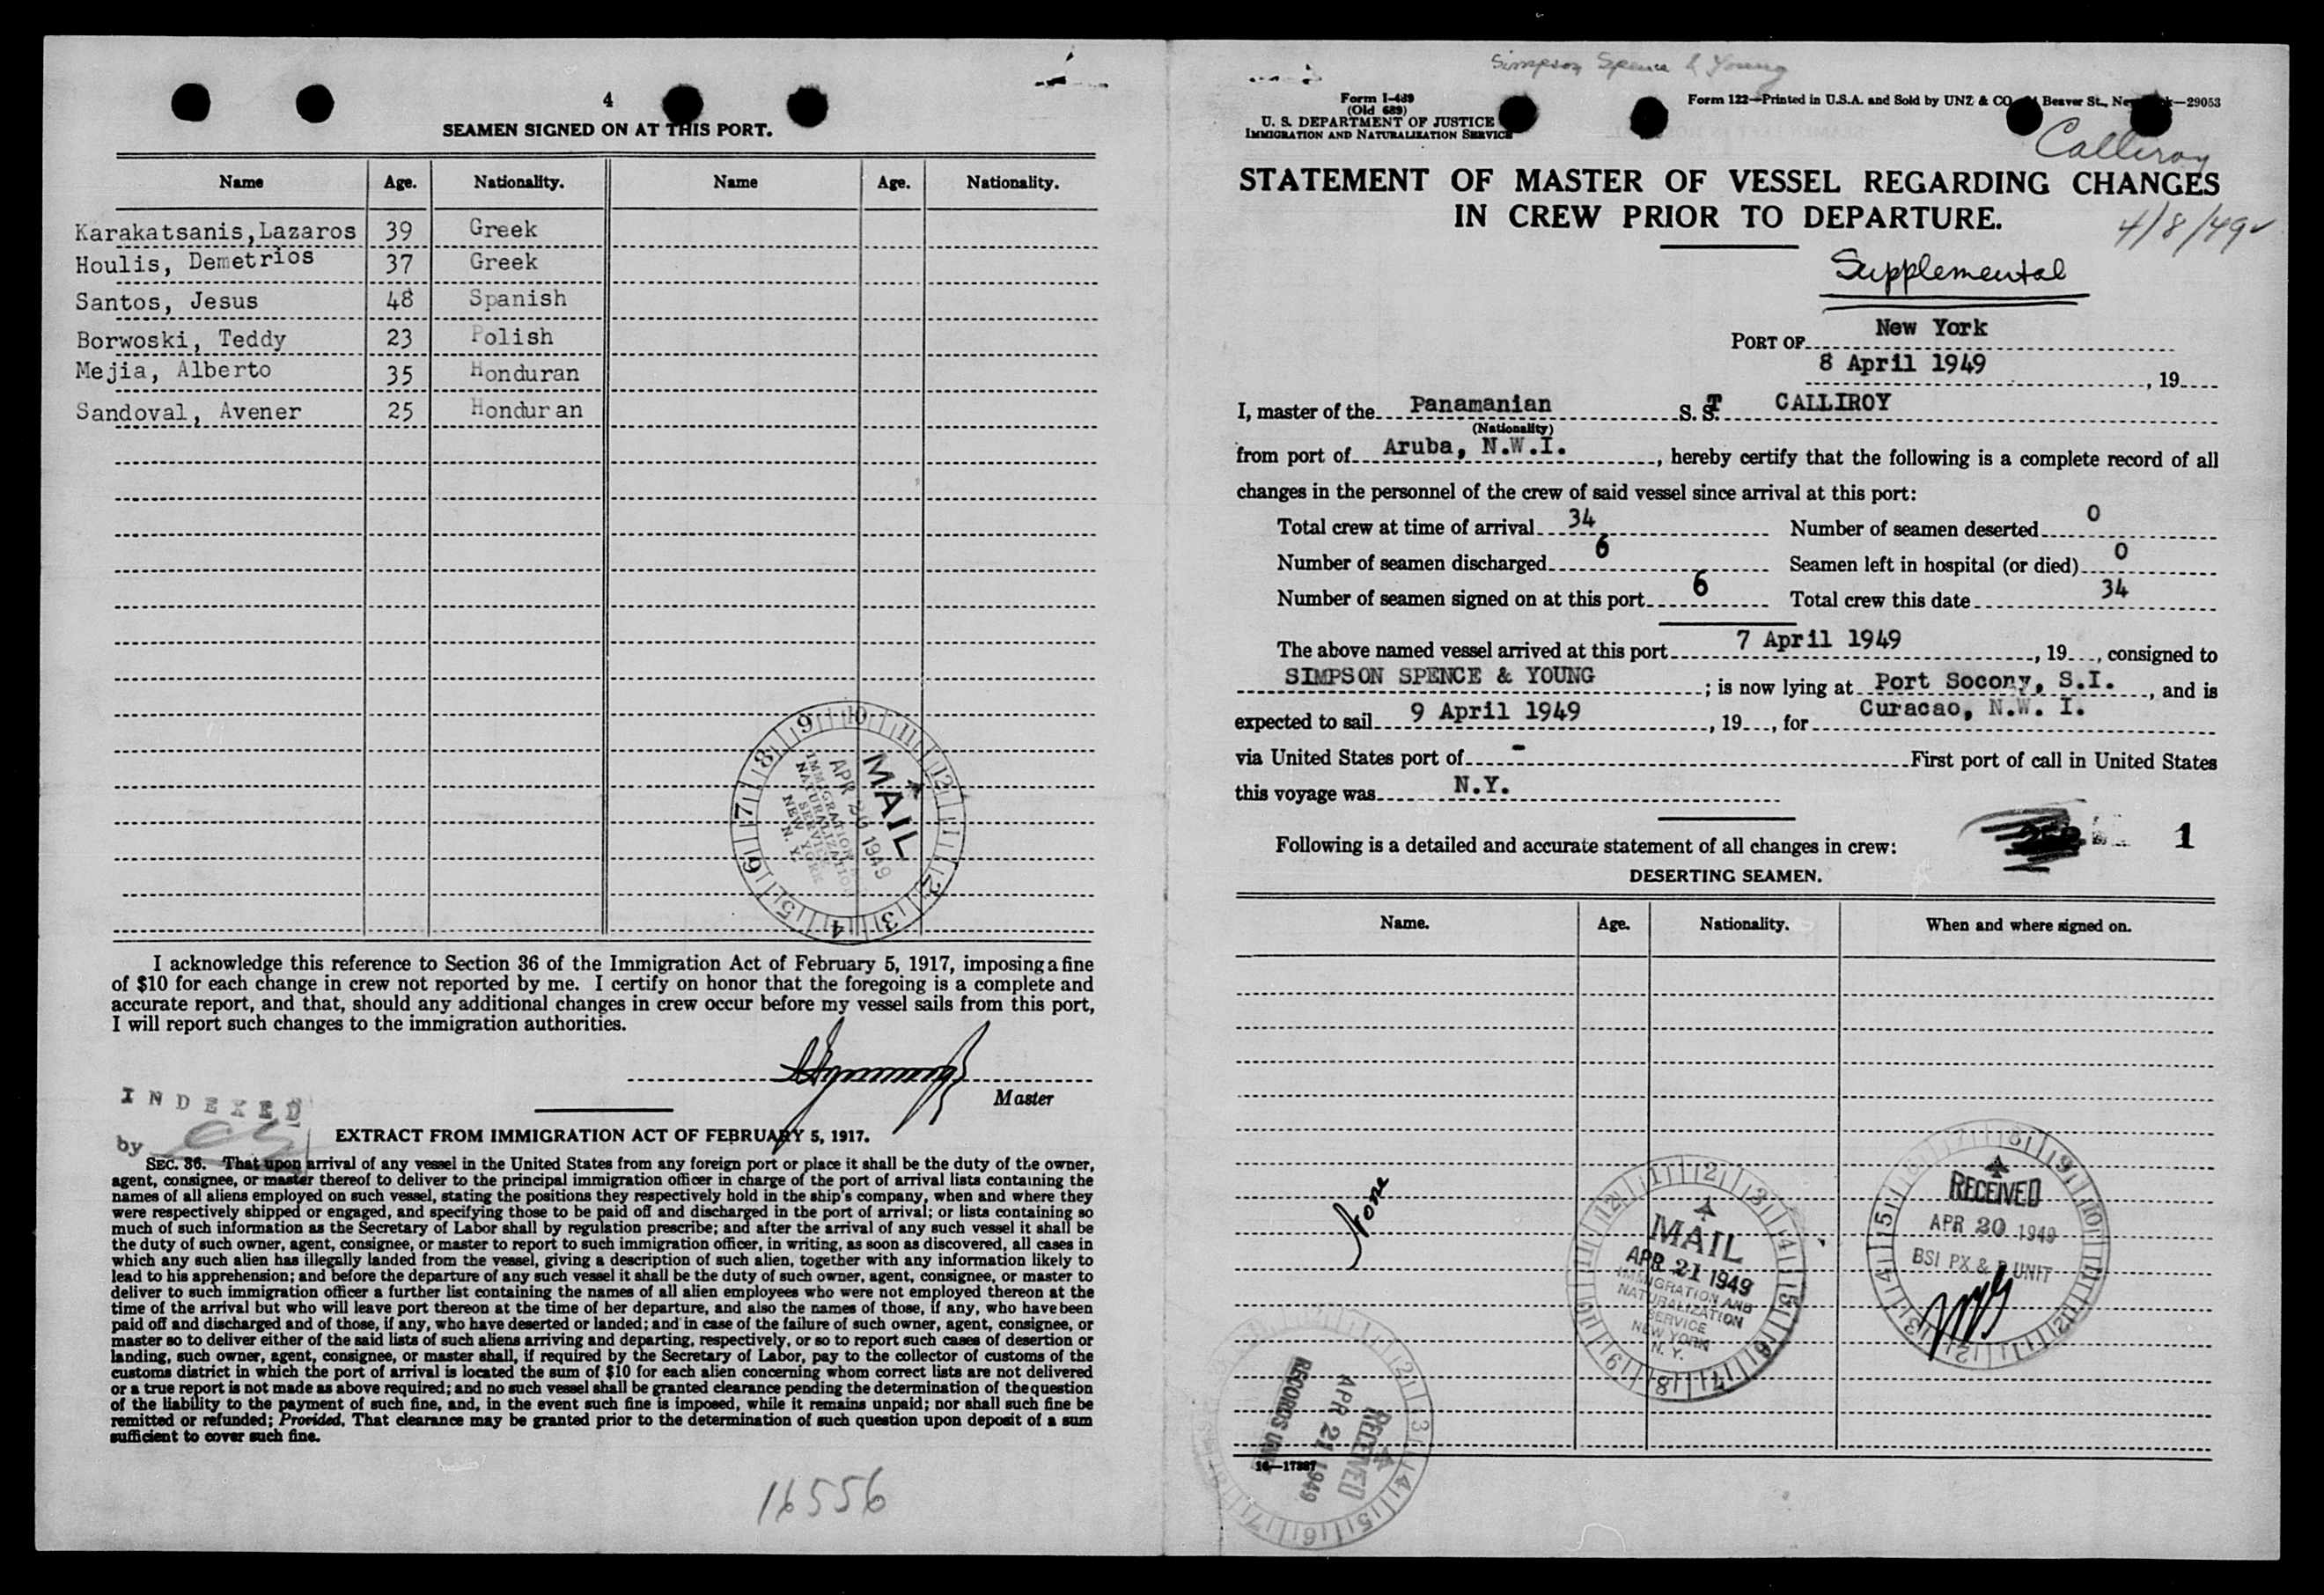 4
SEAMEN SIGNED ON AT THIS PORT.
Name Age. Nationality. Name Age. Nationality.
Karakatsanis, Lazaros 39 Greek
Houlis, Demetrios 37 Greek
Santos, Jesus 48 Spanish
Borwoski, Teddy 23 Polish
Mejia, Alberto 35 Honduran
Sandoval, Avener 25 Honduran
9 10 11 12 1 2 3 4 5 6 7 8
MAIL
APR 1949
IMMIGRATION
NATURALIZATION
SERVICE
NEW YORK
N. Y.
I acknowledge this reference to Section 36 of the Immigration Act of February 5, 1917, imposing a fine
of $10 for each change in crew not reported by me. I certify on honor that the foregoing is a complete and
accurate report, and that, should any additional changes in crew occur before my vessel sails from this port,
I will report such changes to the immigration authorities.
Master
INDEXED
by
EXTRACT FROM IMMIGRATION ACT OF FEBRUARY 5, 1917.
SEC. 36. That upon arrival of any vessel in the United States from any foreign port or place it shall be the duty of the owner,
agent, consignee, or master thereof to deliver to the principal immigration officer in charge of the port of arrival lists containing the
names of all aliens employed on such vessel, stating the positions they respectively hold in the ship's company, when and where they
were respectively shipped or engaged, and specifying those to be paid off and discharged in the port of arrival; or lists containing so
much of such information as the Secretary of Labor shall by regulation prescribe; and after the arrival of any such vessel it shall be
the duty of such owner, agent, consignee, or master to report to such immigration officer, in writing, as soon as discovered, all cases in
which any such alien has illegally landed from the vessel, giving a description of such alien, together with any information likely to
lead to his apprehension; and before the departure of any such vessel it shall be the duty of such owner, agent, consignee, or master to
deliver to such immigration officer a further list containing the names of all alien employees who were not employed thereon at the
time of the arrival but who will leave port thereon at the time of her departure, and also the names of those, if any, who have been
paid off and discharged and of those, if any, who have deserted or landed; and in case of the failure of such owner, agent, consignee, or
master so to deliver either of the said lists of such aliens arriving and departing, respectively, or so to report such cases of desertion or
landing, such owner, agent, consignee, or master shall, if required by the Secretary of Labor, pay to the collector of customs of the
customs district in which the port of arrival is located the sum of $10 for each alien concerning whom correct lists are not delivered
or a true report is not made as above required; and no such vessel shall be granted clearance pending the determination of the question
of the liability to the payment of such fine, and, in the event such fine is imposed, while it remains unpaid; nor shall such fine be
remitted or refunded; Provided, That clearance may be granted prior to the determination of such question upon deposit of a sum
sufficient to cover such fine.
16556
Simpson Spence & Young
Form I-489
(Old 689)
U. S. DEPARTMENT OF JUSTICE
IMMIGRATION AND NATURALIZATION SERVICE
Form 122—Printed in U.S.A. and Sold by UNZ & CO. Beaver St., —29053
Calliroy
STATEMENT OF MASTER OF VESSEL REGARDING CHANGES
IN CREW PRIOR TO DEPARTURE.
4/8/49
Supplemental
PORT OF New York
8 April 1949, 19
I, master of the Panamanian S. S.T CALLIROY
(Nationality)
from port of Aruba, N.W.I., hereby certify that the following is a complete record of all
changes in the personnel of the crew of said vessel since arrival at this port:
Total crew at time of arrival 34 Number of seamen deserted 0
Number of seamen discharged 6 Seamen left in hospital (or died) 0
Number of seamen signed on at this port 6 Total crew this date 34
The above named vessel arrived at this port 7 April 1949, 19, consigned to
SIMPSON SPENCE & YOUNG; is now lying at Port Socony, S.I., and is
expected to sail 9 April 1949, 19, for Curacao, N.W. I.
via United States port of - First port of call in United States
this voyage was N.Y.
Following is a detailed and accurate statement of all changes in crew: 1
DESERTING SEAMEN.
Name. Age. Nationality. When and where signed on.
None
MAIL
APR 21 1949
IMMIGRATION AND
NATURALIZATION
SERVICE
NEW YORK
N. Y.
RECEIVED
APR 20 1949
BSI PX & UNIT
RECEIVED
APR 21 1949
RECORDS UNIT
16—17387